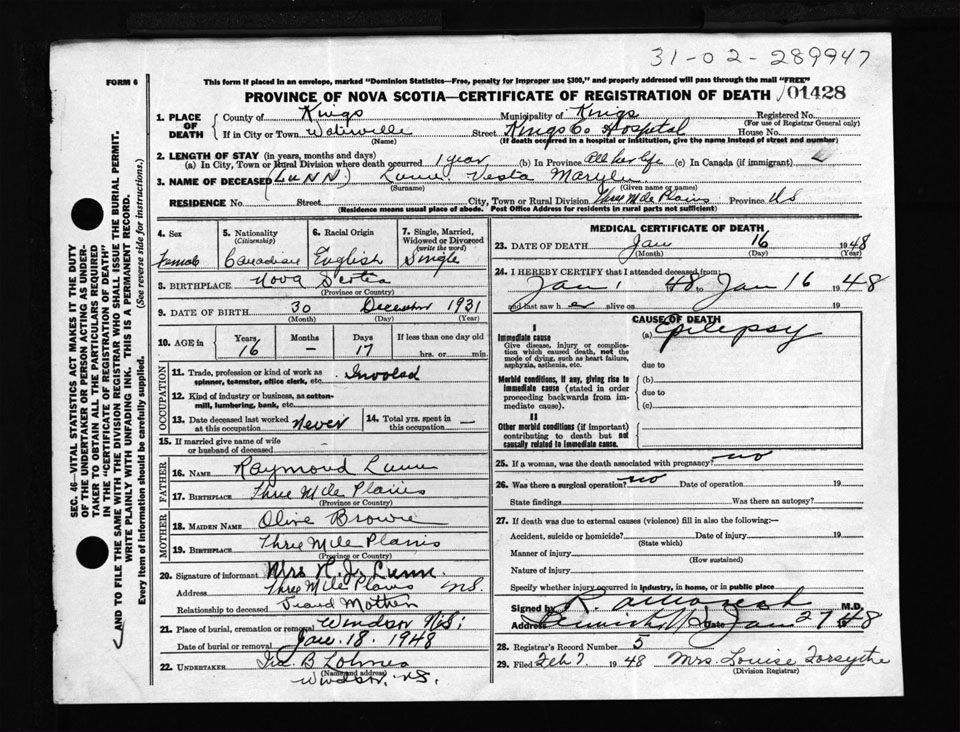 31-02-289947
FORM 6
This form if placed in an envelope, marked "Dominion Statistics—Free, penalty for improper use $300," and properly addressed will pass through the mail "FREE"
PROVINCE OF NOVA SCOTIA—CERTIFICATE OF REGISTRATION OF DEATH 01428
1. PLACE OF DEATH
County of Kings Municipality of Kings Registered No.
(For use of Registrar General only)
If in City or Town Waterville Street Kings Co Hospital House No.
(Name) (If death occurred in a hospital or institution, give the name instead of street and number)
2. LENGTH OF STAY (in years, months and days)
(a) In City, Town or Rural Division where death occurred 1 year (b) In Province All her life (c) In Canada (if immigrant)
3. NAME OF DECEASED (LUNN) Lunn Vesta
(Surname) (Given name or names)
RESIDENCE No. Street City, Town or Rural Division Three Mile Plains Province NS
(Residence means usual place of abode. Post Office Address for residents in rural parts not sufficient)
SEC. 46—VITAL STATISTICS ACT MAKES IT THE DUTY
OF THE UNDERTAKER OR PERSON ACTING AS UNDER-
TAKER TO OBTAIN ALL THE PARTICULARS REQUIRED
IN THE "CERTIFICATE OF REGISTRATION OF DEATH"
AND TO FILE THE SAME WITH THE DIVISION REGISTRAR WHO SHALL ISSUE THE BURIAL PERMIT.
WRITE PLAINLY WITH UNFADING INK. THIS IS A PERMANENT RECORD.
Every item of information should be carefully supplied. (See reverse side for instructions.)
4. Sex Female
5. Nationality (Citizenship) Canadian
6. Racial Origin English
7. Single, Married, Widowed or Divorced (write the word) Single
8. BIRTHPLACE Nova Scotia
(Province or Country)
9. DATE OF BIRTH 30 December 1931
(Month) (Day) (Year)
10. AGE in Years 16 Months — Days 17 If less than one day old
hrs. or min.
OCCUPATION
11. Trade, profession or kind of work as spinner, teamster, office clerk, etc. Invalid
12. Kind of industry or business, as cotton-mill, lumbering, bank, etc.
13. Date deceased last worked at this occupation never
14. Total yrs. spent in this occupation —
15. If married give name of wife or husband of deceased —
FATHER
16. NAME Raymond Lunn
17. BIRTHPLACE Three Mile Plains
(Province or Country)
MOTHER
18. MAIDEN NAME Olive Browne
19. BIRTHPLACE Three Mile Plains
(Province or Country)
20. Signature of informant Mrs Lunn
Address Three Mile Plains NS.
Relationship to deceased Grand Mother
21. Place of burial, cremation or removal Windsor N.S.
Date of burial or removal Jan. 18. 1948
22. UNDERTAKER B
(Name and address)
Windsor. NS.
MEDICAL CERTIFICATE OF DEATH
23. DATE OF DEATH Jan 16 1948
(Month) (Day) (Year)
24. I HEREBY CERTIFY that I attended deceased from:
Jan 1 1948 to Jan 16 1948
and last saw h er alive on 19
CAUSE OF DEATH
I
Immediate cause (a) Epilepsy
Give disease, injury or complication which caused death, not the mode of dying, such as heart failure, asphyxia, asthenia, etc.
due to
Morbid conditions, if any, giving rise to immediate cause (stated in order proceeding backwards from immediate cause). (b)
due to
(c)
II
Other morbid conditions (if important) contributing to death but not causally related to immediate cause.
25. If a woman, was the death associated with pregnancy? no
26. Was there a surgical operation? no Date of operation 19
State findings Was there an autopsy?
27. If death was due to external causes (violence) fill in also the following:—
Accident, suicide or homicide? Date of injury 19
(State which)
Manner of injury
(How sustained)
Nature of injury
Specify whether injury occurred in industry, in home, or in public place
Signed by R. M.D.
Address Berwick NS Date Jan 27 1948
28. Registrar's Record Number 5
29. Filed Feb 7 1948 Mrs. Louise Forsythe
(Division Registrar)